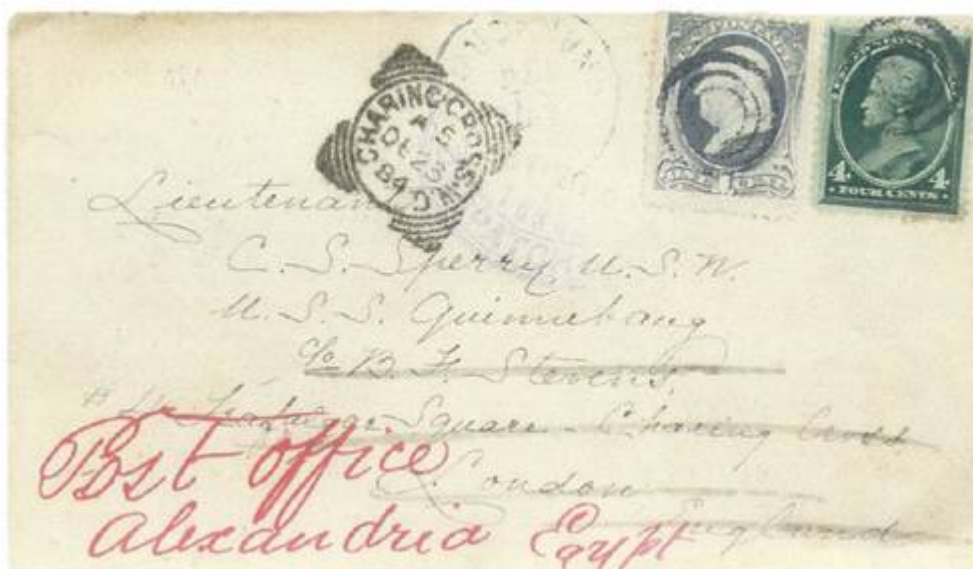 CHARING·CROSS·W.C.
A 5
DE 23
84
4 4
FOUR CENTS
Lieutenant
C. S. Sperry U.S.N.
U. S. S. Quinnebaug
c/o B. F. Stevens,
Trafalgar Square - Charing Cross
London
England
Post office
Alexandria Egypt